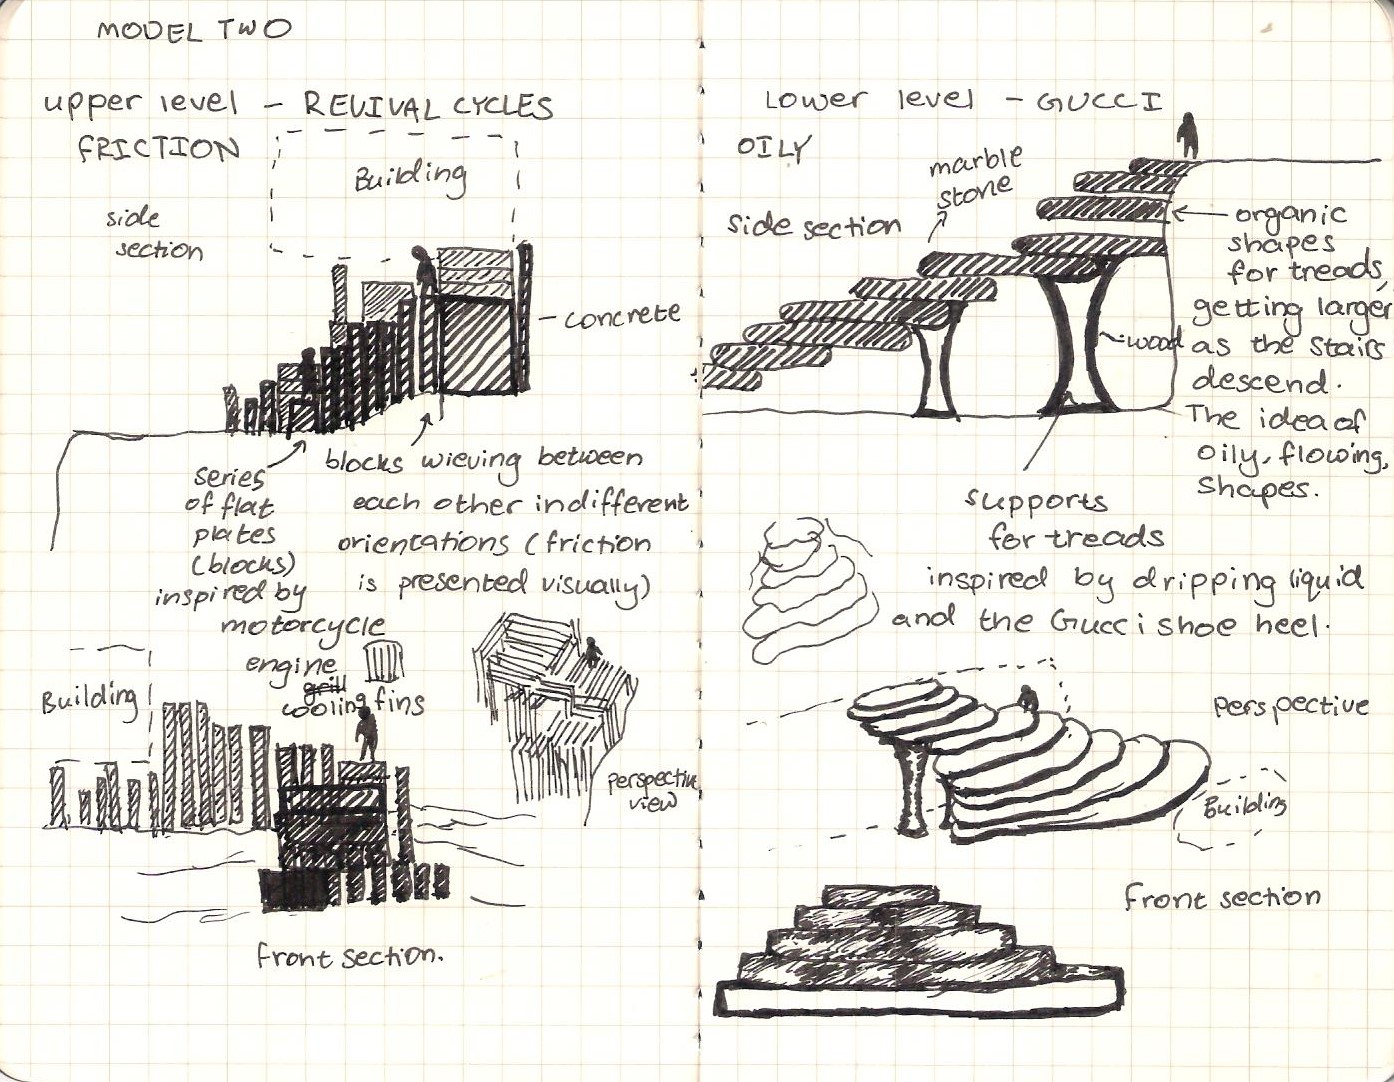 MODEL TWO
upper level - REVIVAL CYCLES
FRICTION
Building
side
section
concrete
series
of flat
plates
(blocks)
inspired by
motorcycle
engine
grill
cooling fins
blocks wieving between
each other in different
orientations (friction
is presented visually)
Building
perspective
view
front section.
Lower level - GUCCI
OILY
marble
stone
side section
organic
shapes
for treads,
getting larger
as the stairs
descend.
The idea of
oily, flowing,
shapes.
wood
supports
for treads
inspired by dripping liquid
and the Gucci shoe heel.
Perspective
Building
front section